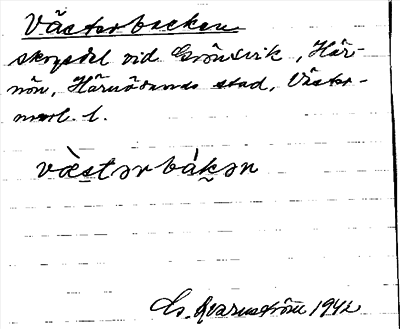 Västerbacken
skogsdel vid Grönsvik, Här-
nön, Härnösands stad, Väster-
norrl. l.
væ̀stərbák̬ən
Es. Qvarnström 1942